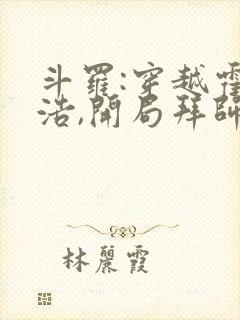 斗羅:穿越霍
浩,開局拜師
林麗霞